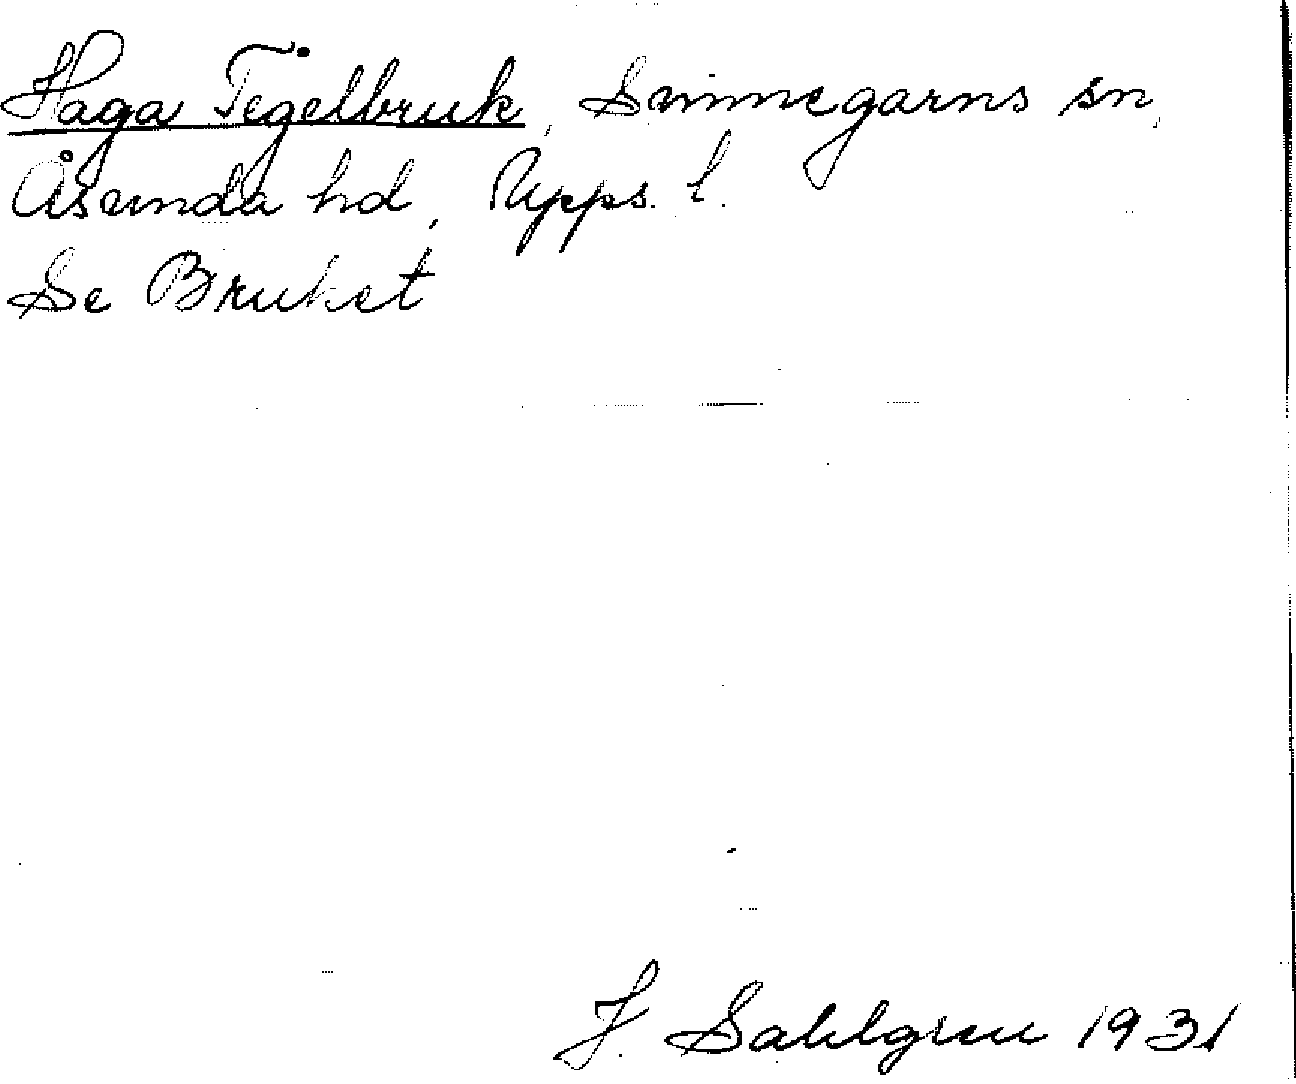 Haga Tegelbruk, Simmegarns sn,
Åsunda hd, Upps. l.
Se Bruket
J. Sahlgren 1931